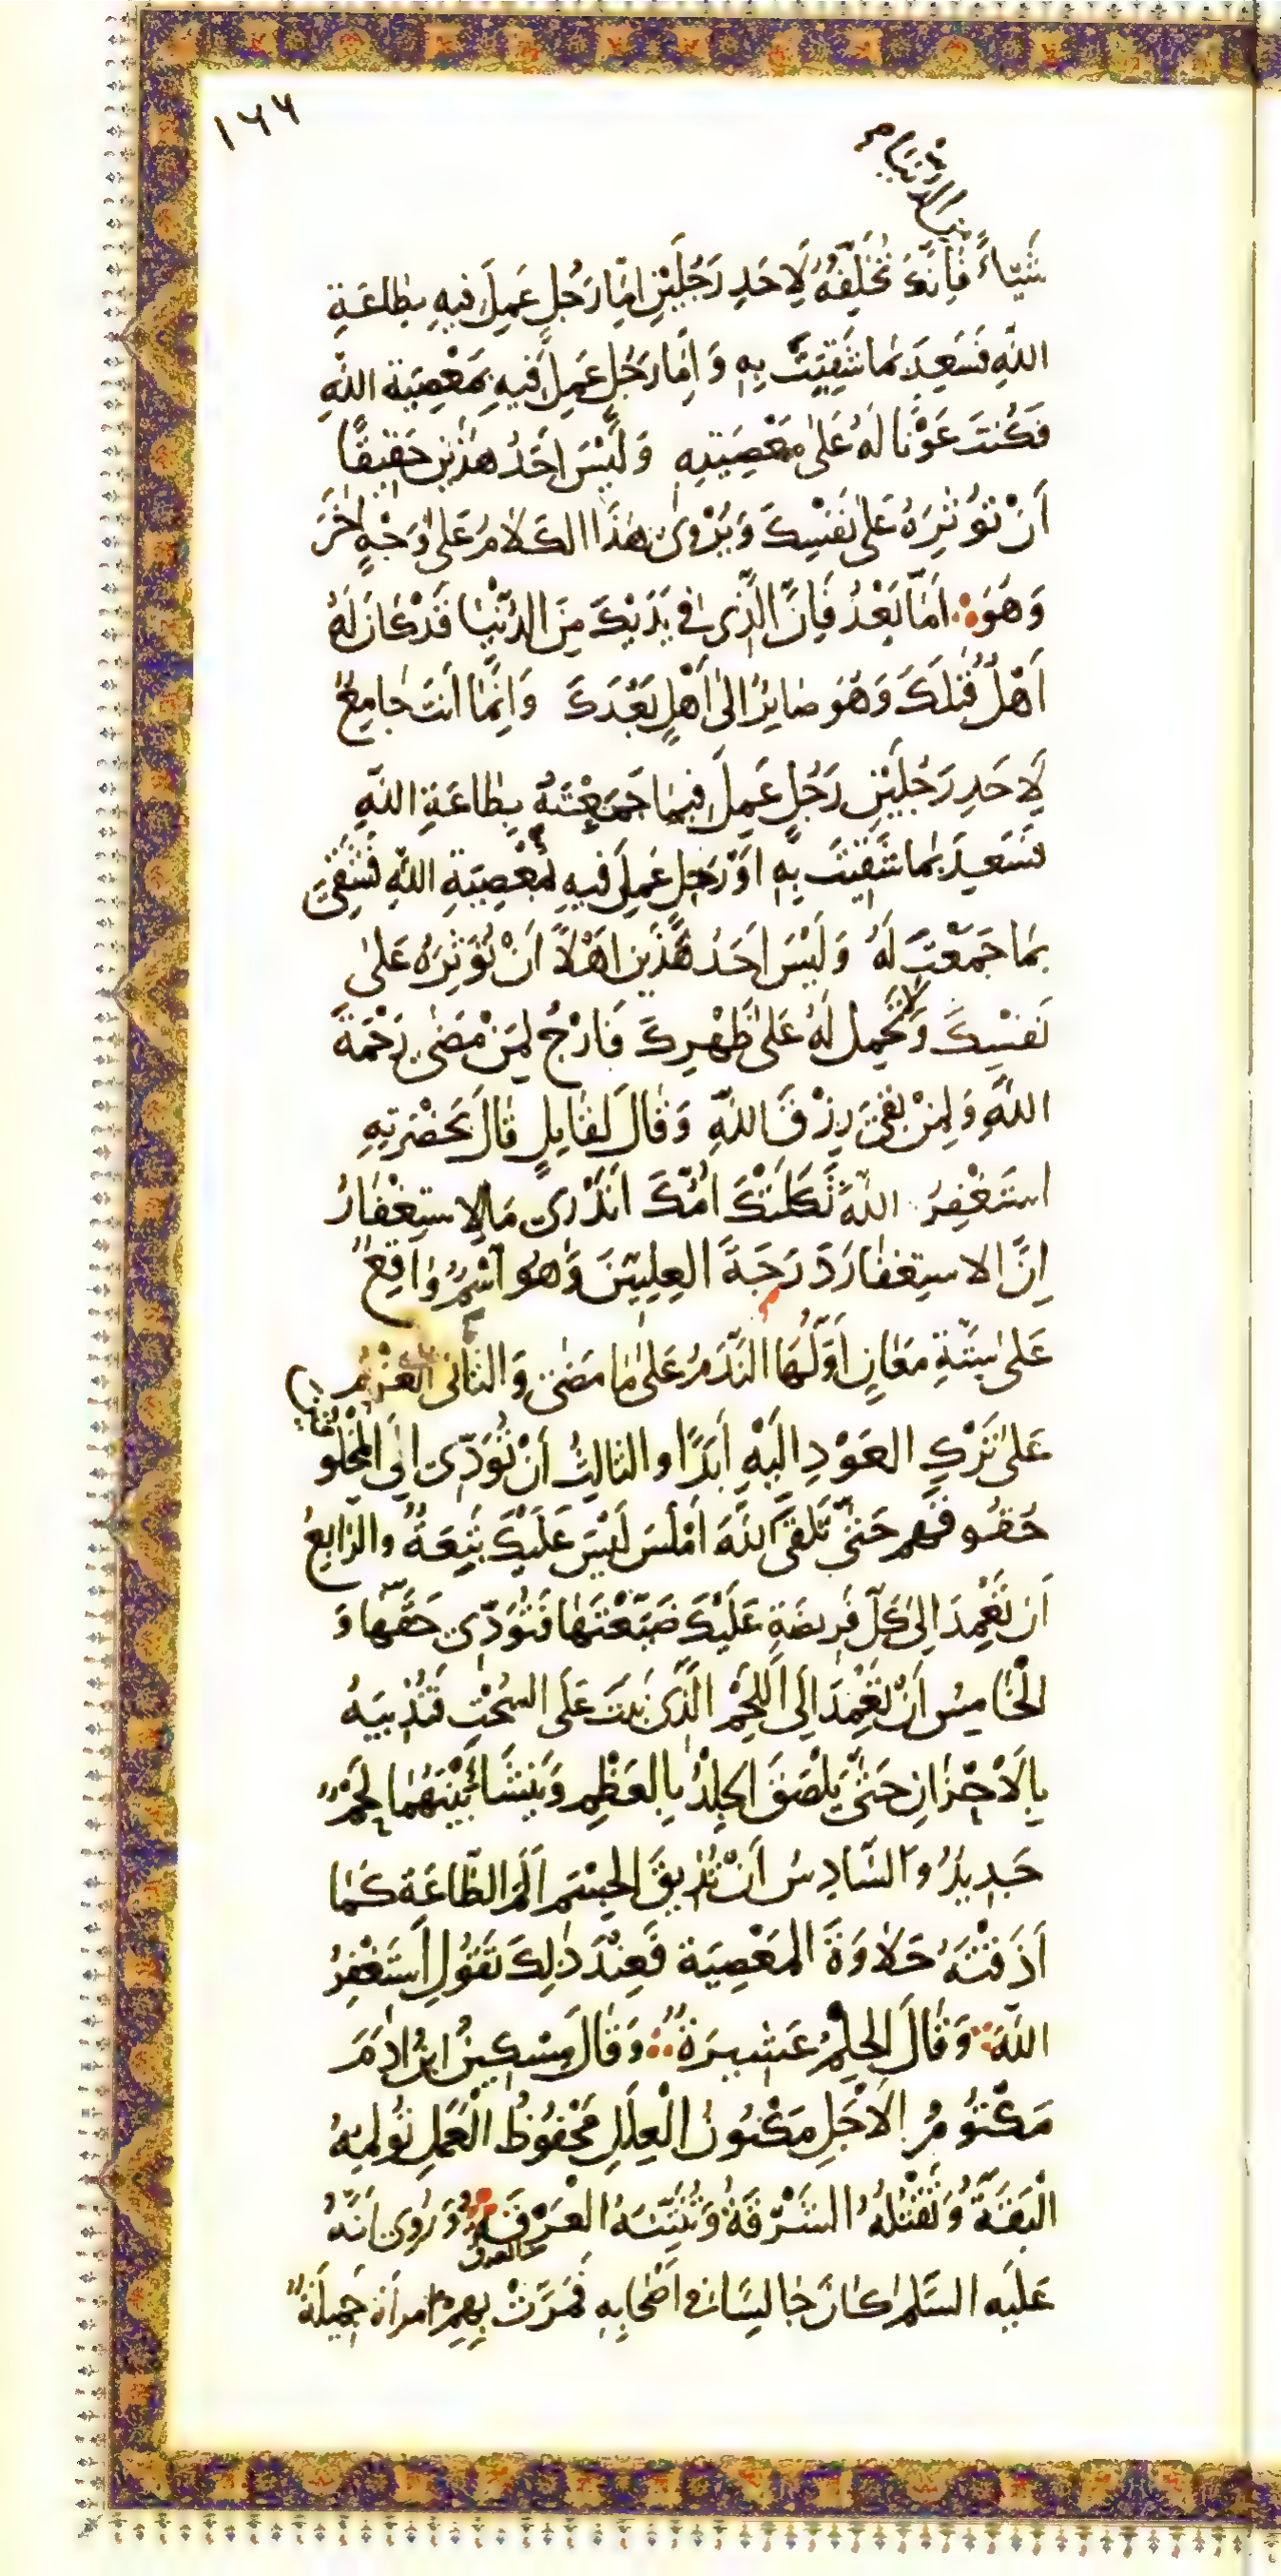 ١٦٦
من الدنيا م
شَيْئًا فَاِنَّكَ تُخَلِّفُهُ لِاَحَدِ رَجُلَيْنِ اِمَّا رَجُلٍ عَمِلَ فيهِ بِطَاعَةِ
اللهِ فَسَعِدَ بِمَا شَقِيْتَ بِهِ وَ اِمَّا رَجُلٍ عَمِلَ فيهِ بِمَعْصِيَةِ اللهِ
فَكُنتَ عَوْنًا لَهُ عَلى مَعْصِيَتِهِ وَ لَيْسَ اَحَدُ هٰذَيْنِ حَقيقًا
اَنْ تُؤْثِرَهُ عَلى نَفْسِكَ وَ يُرْوىٰ هٰذَا الكَلامُ عَلى وَجْهٍ اٰخَرَ
وَ هُوَ اَمّا بَعْدُ فَاِنَّ الَّذِى فى يَدَيْكَ مِنَ الدُّنْيَا قَدْ كَانَ لَهُ
اَهْلٌ قَبْلَكَ وَ هُوَ صَايِرٌ اِلىٰ اَهْلٍ بَعْدَكَ وَ اِنَّمَا اَنتَ جَامِعٌ
لِاَحَدِ رَجُلَيْنِ رَجُلٍ عَمِلَ فيمَا جَمَعْتَهُ بِطَاعَةِ اللهِ
فَسَعِدَ بِمَا شَقيتَ بِهِ اَوْ رَجُلٍ عَمِلَ فيهِ بِمَعْصِيَةِ اللهِ فَشَقِىَ
بِمَا جَمَعْتَ لَهُ وَ لَيْسَ اَحَدُ هٰذَيْنِ اَهْلاً اَنْ تُؤْثِرَهُ عَلىٰ
نَفْسِكَ وَلا تَحْمِلَ لَهُ عَلىٰ ظَهْرِكَ فَارْجُ لِمَنْ مَضىٰ رَحْمَةَ
اللهِ وَ لِمَنْ بَقِىَ رِزْقَ اللهِ وَ قَالَ لِقَايِلٍ قَالَ بِحَضْرَتِهِ
اَستَغْفِرُ اللهَ ثَكَلَتْكَ اُمُّكَ اَتَدْرى مَا الِاستِغْفَارُ
اِنَّ الاستِغفَارَ دَرَجَةُ العِلِّيّينَ وَ هُوَ اسْمٌ وَاقِعٌ
عَلىٰ سِتَّةِ مَعَانٍ اَوَّلُهَا النَّدَمُ عَلىٰ مَا مَضىٰ وَ الثَّانى العَزْمُ
عَلىٰ تَرْكِ العَوْدِ اِلَيْهِ اَبَدًا و الثالِثُ اَنْ تُؤَدِّىَ اِلَى المَخْلُوقينَ
حُقُوقَهُم حَتّىٰ تَلْقىَ اللهَ اَمْلَسَ لَيْسَ عَلَيْكَ تَبِعَةٌ والرَّابِعُ
اَن تَعْمِدَ اِلىٰ كُلِّ فَريضَةٍ عَلَيْكَ ضَيَّعْتَهَا فَتُؤَدِّىَ حَقَّهَا وَ
الْخَامِسُ اَنْ تَعْمِدَ اِلَى اللَّحْمِ الَّذى نَبَتَ عَلَى السُّحْتِ فَتُذيبَهُ
بِالاَحْزَانِ حَتّىٰ يَلْصَقَ الجِلْدُ بِالعَظْمِ وَ يَنْشَأَ بَيْنَهُمَا لَحْمٌ
جَديدٌ و السَّادِسُ اَنْ تُذيقَ الجِسْمَ اَلَمَ الطَّاعَةِ كَمَا
اَذَقْتَهُ حَلاوَةَ المَعْصِيَةِ فَعِنْدَ ذٰلِكَ تَقُولُ اَستَغْفِرُ
اللهَ وَ قَالَ الحِلْمُ عَشيرَةٌ وَ قَالَ مِسْكينٌ ابنُ ادَمَ
مَكْتُومُ الاَجَلِ مَكْنُونُ الْعِلَلِ مَحْفُوظُ الْعَمَلِ تُولِمُهُ
الْبَقَّةُ وَ تَقْتُلُهُ الشَّرْقَةُ وَ تُنْتِنُهُ الْعَرْقَةُ وَ رُوِىَ اَنَّهُ
عَلَيه السَّلَم كَانَ جَالِسًا فى اَصْحَابِهِ فَمَرَّتْ بِهِمْ امرَأة جَميلَةٌ